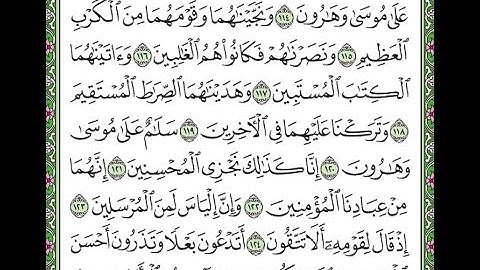 عَلَىٰ مُوسَىٰ وَهَٰرُونَ ١١٤ وَنَجَّيْنَٰهُمَا وَقَوْمَهُمَا مِنَ ٱلْكَرْبِ
ٱلْعَظِيمِ ١١٥ وَنَصَرْنَٰهُمْ فَكَانُوا۟ هُمُ ٱلْغَٰلِبِينَ ١١٦ وَءَاتَيْنَٰهُمَا
ٱلْكِتَٰبَ ٱلْمُسْتَبِينَ ١١٧ وَهَدَيْنَٰهُمَا ٱلصِّرَٰطَ ٱلْمُسْتَقِيمَ
١١٨ وَتَرَكْنَا عَلَيْهِمَا فِى ٱلْءَاخِرِينَ ١١٩ سَلَٰمٌ عَلَىٰ مُوسَىٰ
وَهَٰرُونَ ١٢٠ إِنَّا كَذَٰلِكَ نَجْزِى ٱلْمُحْسِنِينَ ١٢١ إِنَّهُمَا
مِنْ عِبَادِنَا ٱلْمُؤْمِنِينَ ١٢٢ وَإِنَّ إِلْيَاسَ لَمِنَ ٱلْمُرْسَلِينَ ١٢٣
إِذْ قَالَ لِقَوْمِهِۦٓ أَلَا تَتَّقُونَ ١٢٤ أَتَدْعُونَ بَعْلًا وَتَذَرُونَ أَحْسَنَ